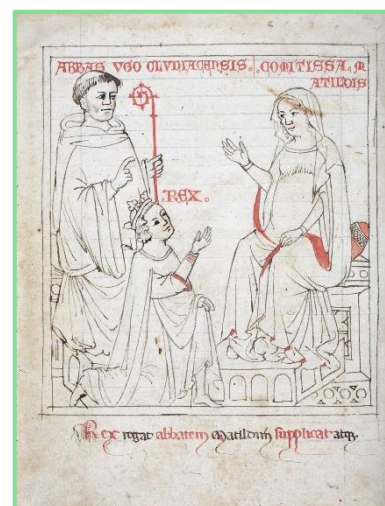 ABBAS VGO CLVNIACENSIS. COMITISSA. M
ATILDIS
REX.
Rex rogat abbatem Matildim supplicat atq.